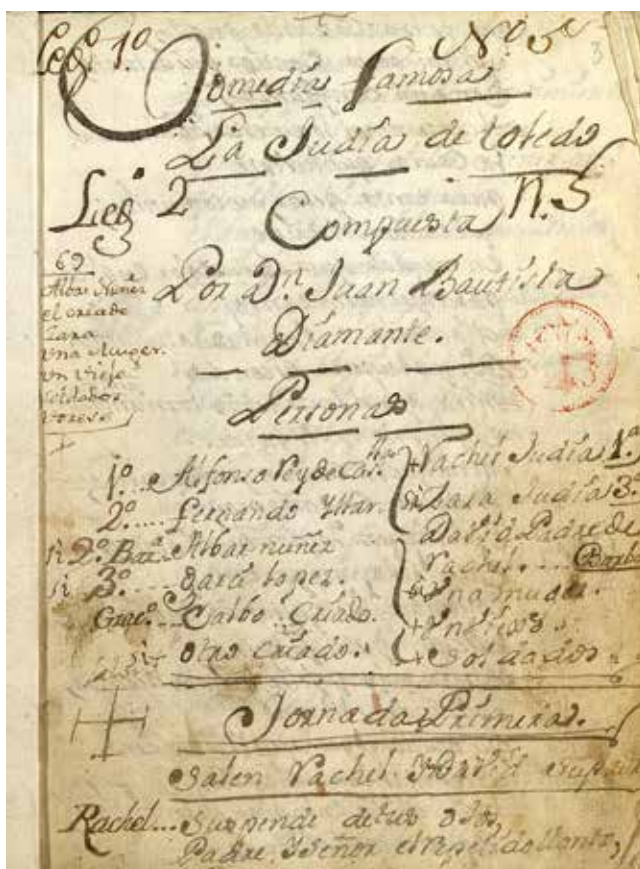 Leg.º 1.º Nº 5º 3
Comedia famosa
La Judía de toledo
Leg.º 2 n. 5
Compuesta
Por D.n Juan Bautista
Diamante.
69
Albar Nuñez
el criado
Zara
Una Muger.
Un Viejo
Soldados
Personas
1.º ... Alfonso Rey de Cas.lla
2.º .... fernando Yllan.
si 2.º Bar.a Albar nuñez
si 3.º garci lopez.
Grac.º ... Calbo Criado.
si otro criado.
+ Rachel Judia 1.ª
si Zara Judia 3.ª
David Padre de
Rachel .... Barba
una muger.
+ Un Viejo.
+ Soldados
Jornada Primera.
Salen Rachel. Y David
Rachel... Suspende de tus ojos,
Padre, Y Señor el repetido llanto,